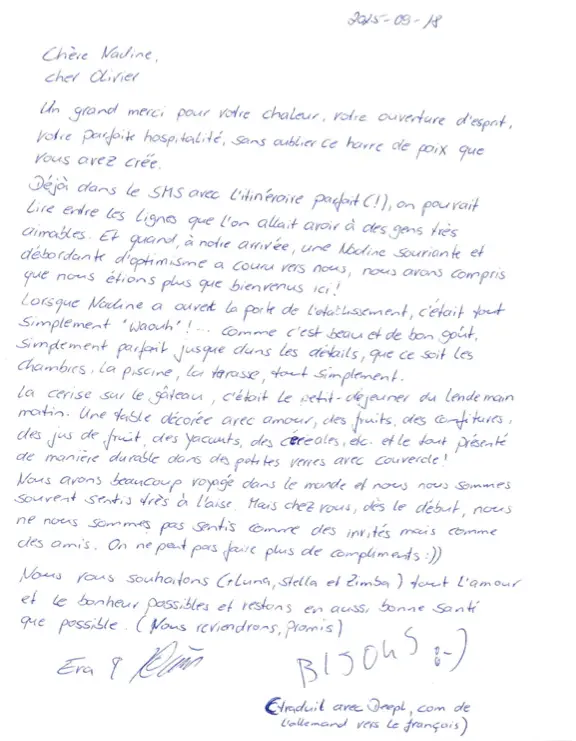 2025-09-18
Chère Nadine,
cher Olivier
Un grand merci pour votre chaleur, votre ouverture d'esprit,
votre parfaite hospitalité, sans oublier ce havre de paix que
vous avez créé.
Déjà dans le SMS avec l'itinéraire parfait (!), on pouvait
lire entre les lignes que l'on allait avoir à des gens très
aimables. Et quand, à notre arrivée, une Nadine souriante et
débordante d'optimisme a couru vers nous, nous avons compris
que nous étions plus que bienvenus ici!
Lorsque Nadine a ouvert la porte de l'établissement, c'était tout
simplement 'Waouh'!... Comme c'est beau et de bon goût,
simplement parfait jusque dans les détails, que ce soit les
chambres, la piscine, la terasse, tout simplement.
La cerise sur le gâteau, c'était le petit-dejeuner du lendemain
matin. Une table décorée avec amour, des fruits, des confitures,
des jus de fruit, des yaourts, des céréales, etc. et le tout présenté
de manière durable dans des petites verres avec couvercle!
Nous avons beaucoup voyagé dans le monde et nous nous sommes
souvent sentis très à l'aise. Mais chez vous, dès le début, nous
ne nous sommes pas sentis comme des invités mais comme
des amis. On ne peut pas faire plus de compliments :))
Nous vous souhaitons (+Luna, Stella et Zimba) tout l'amour
et le bonheur possibles et restons en aussi bonne santé
que possible. (Nous reviendrons, promis)
Eva &
BISOUS :-)
(traduit avec Deepl.com de
l'allemand vers le français)